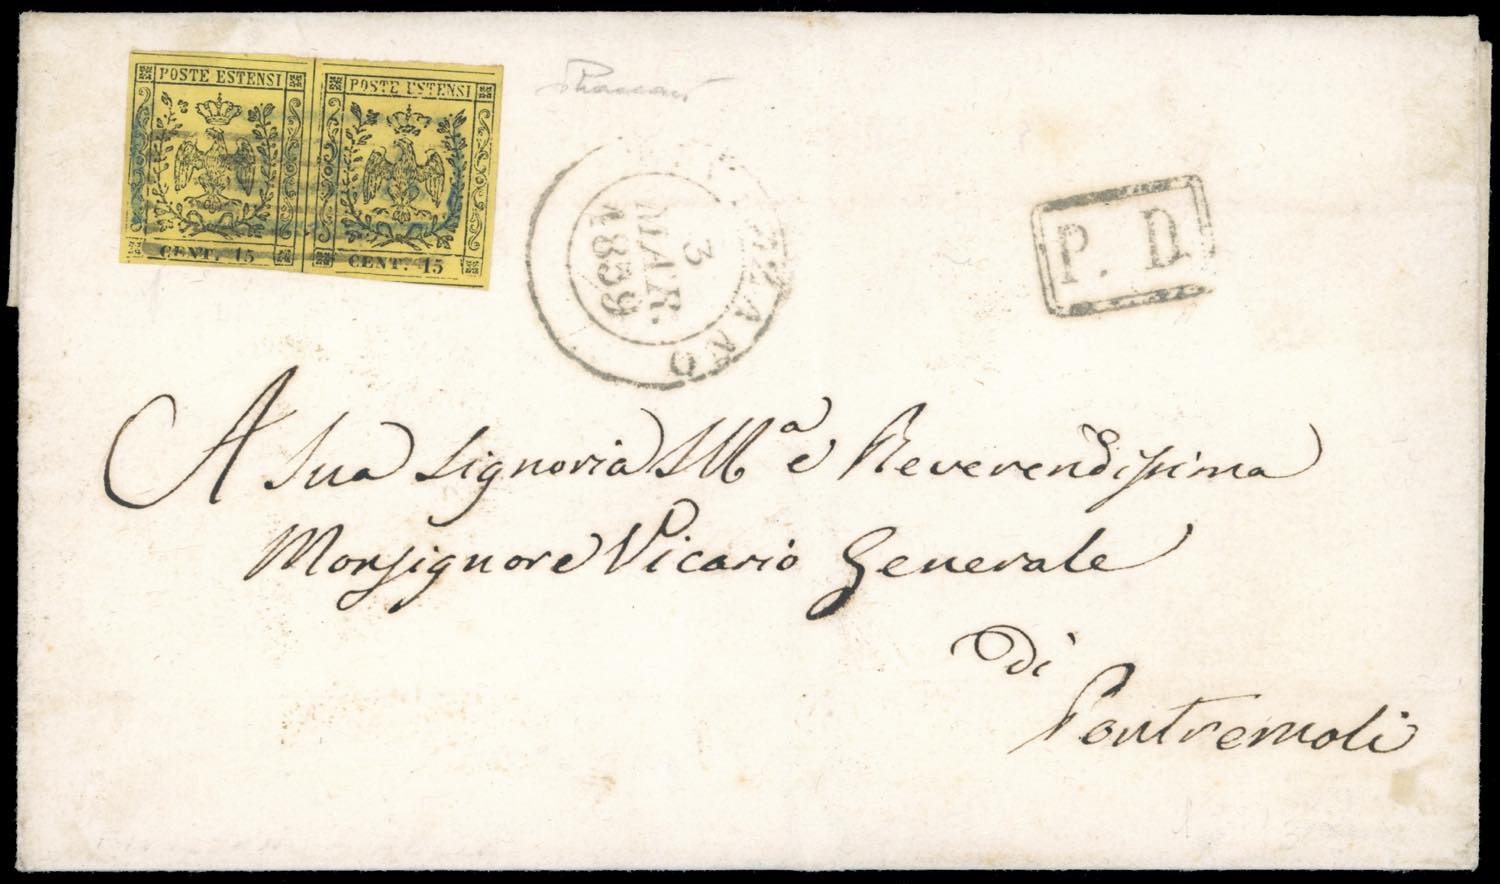 POSTE ESTENSI
CENT. 15
POSTE ESTENSI
CENT. 15
3
MAR.
1859
P. D.
A Sua Signoria Ill.ma e Reverendissima
Monsignore Vicario Generale
di
Pontremoli